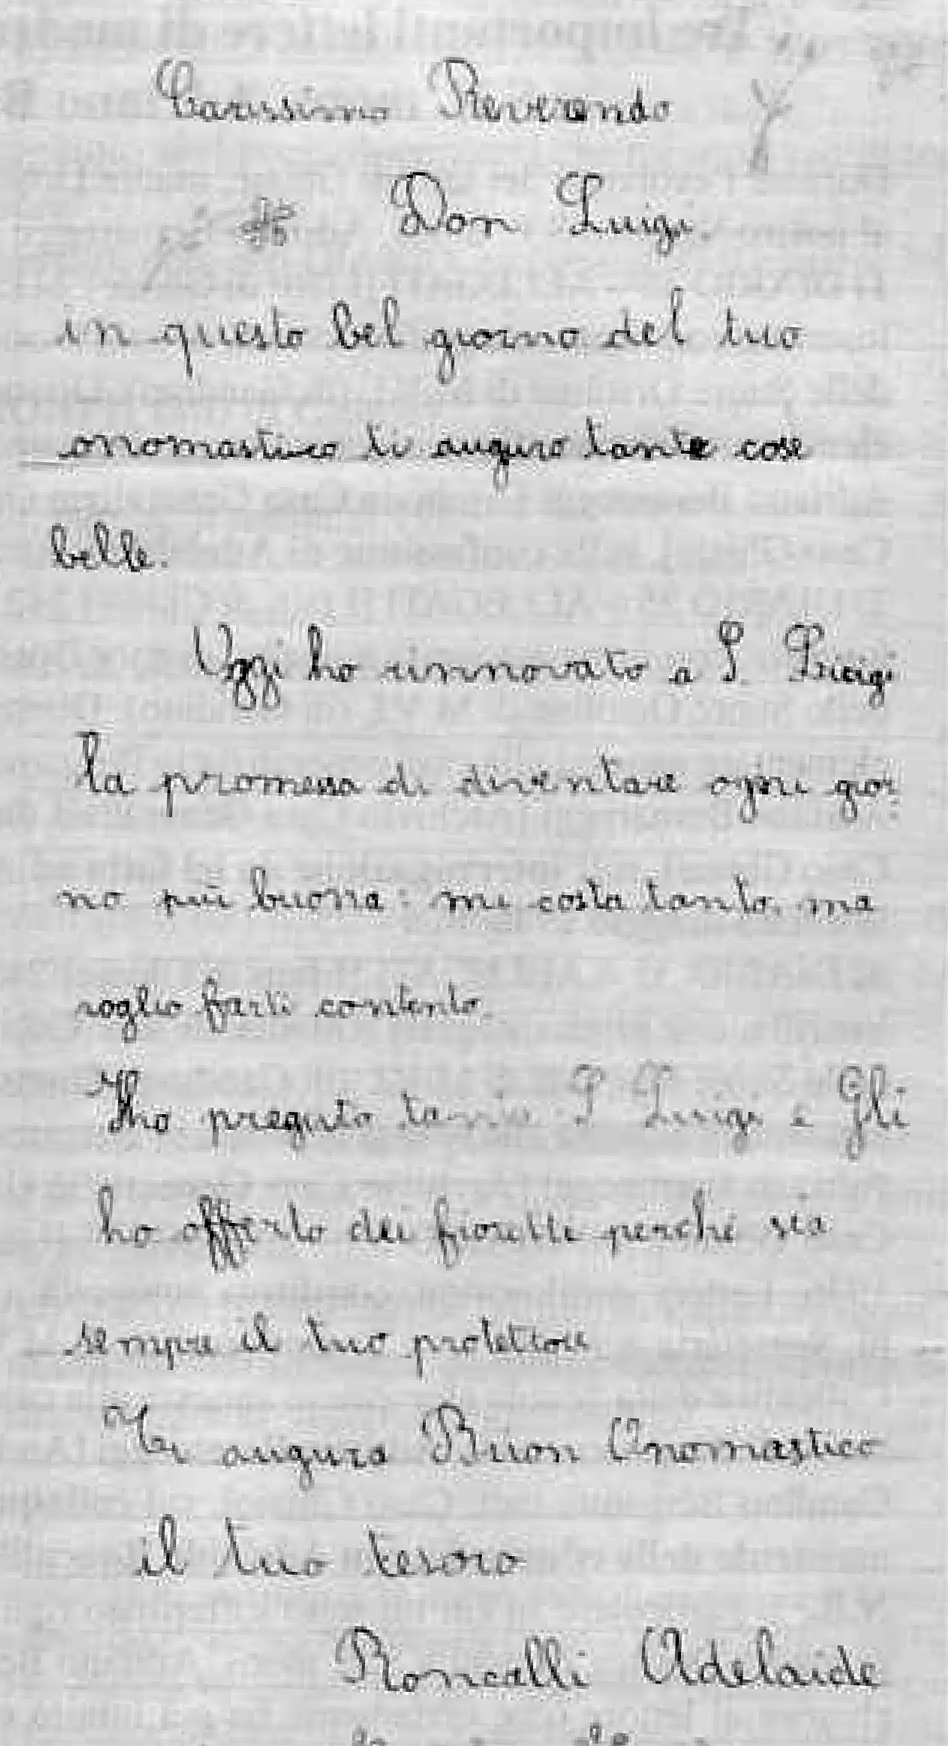 Carissimo Reverendo
Don Luigi.
in questo bel giorno del tuo
onomastico ti auguro tante cose
belle.
Oggi ho rinnovato a S. Luigi
la promessa di diventare ogni gior
no più buona: mi costa tanto, ma
voglio farti contento.
Ho pregato tanto S Luigi e Gli
ho offerto dei fioretti perché sia
sempre il tuo protettore
Ti augura Buon Onomastico
il tuo tesoro
Roncalli Adelaide